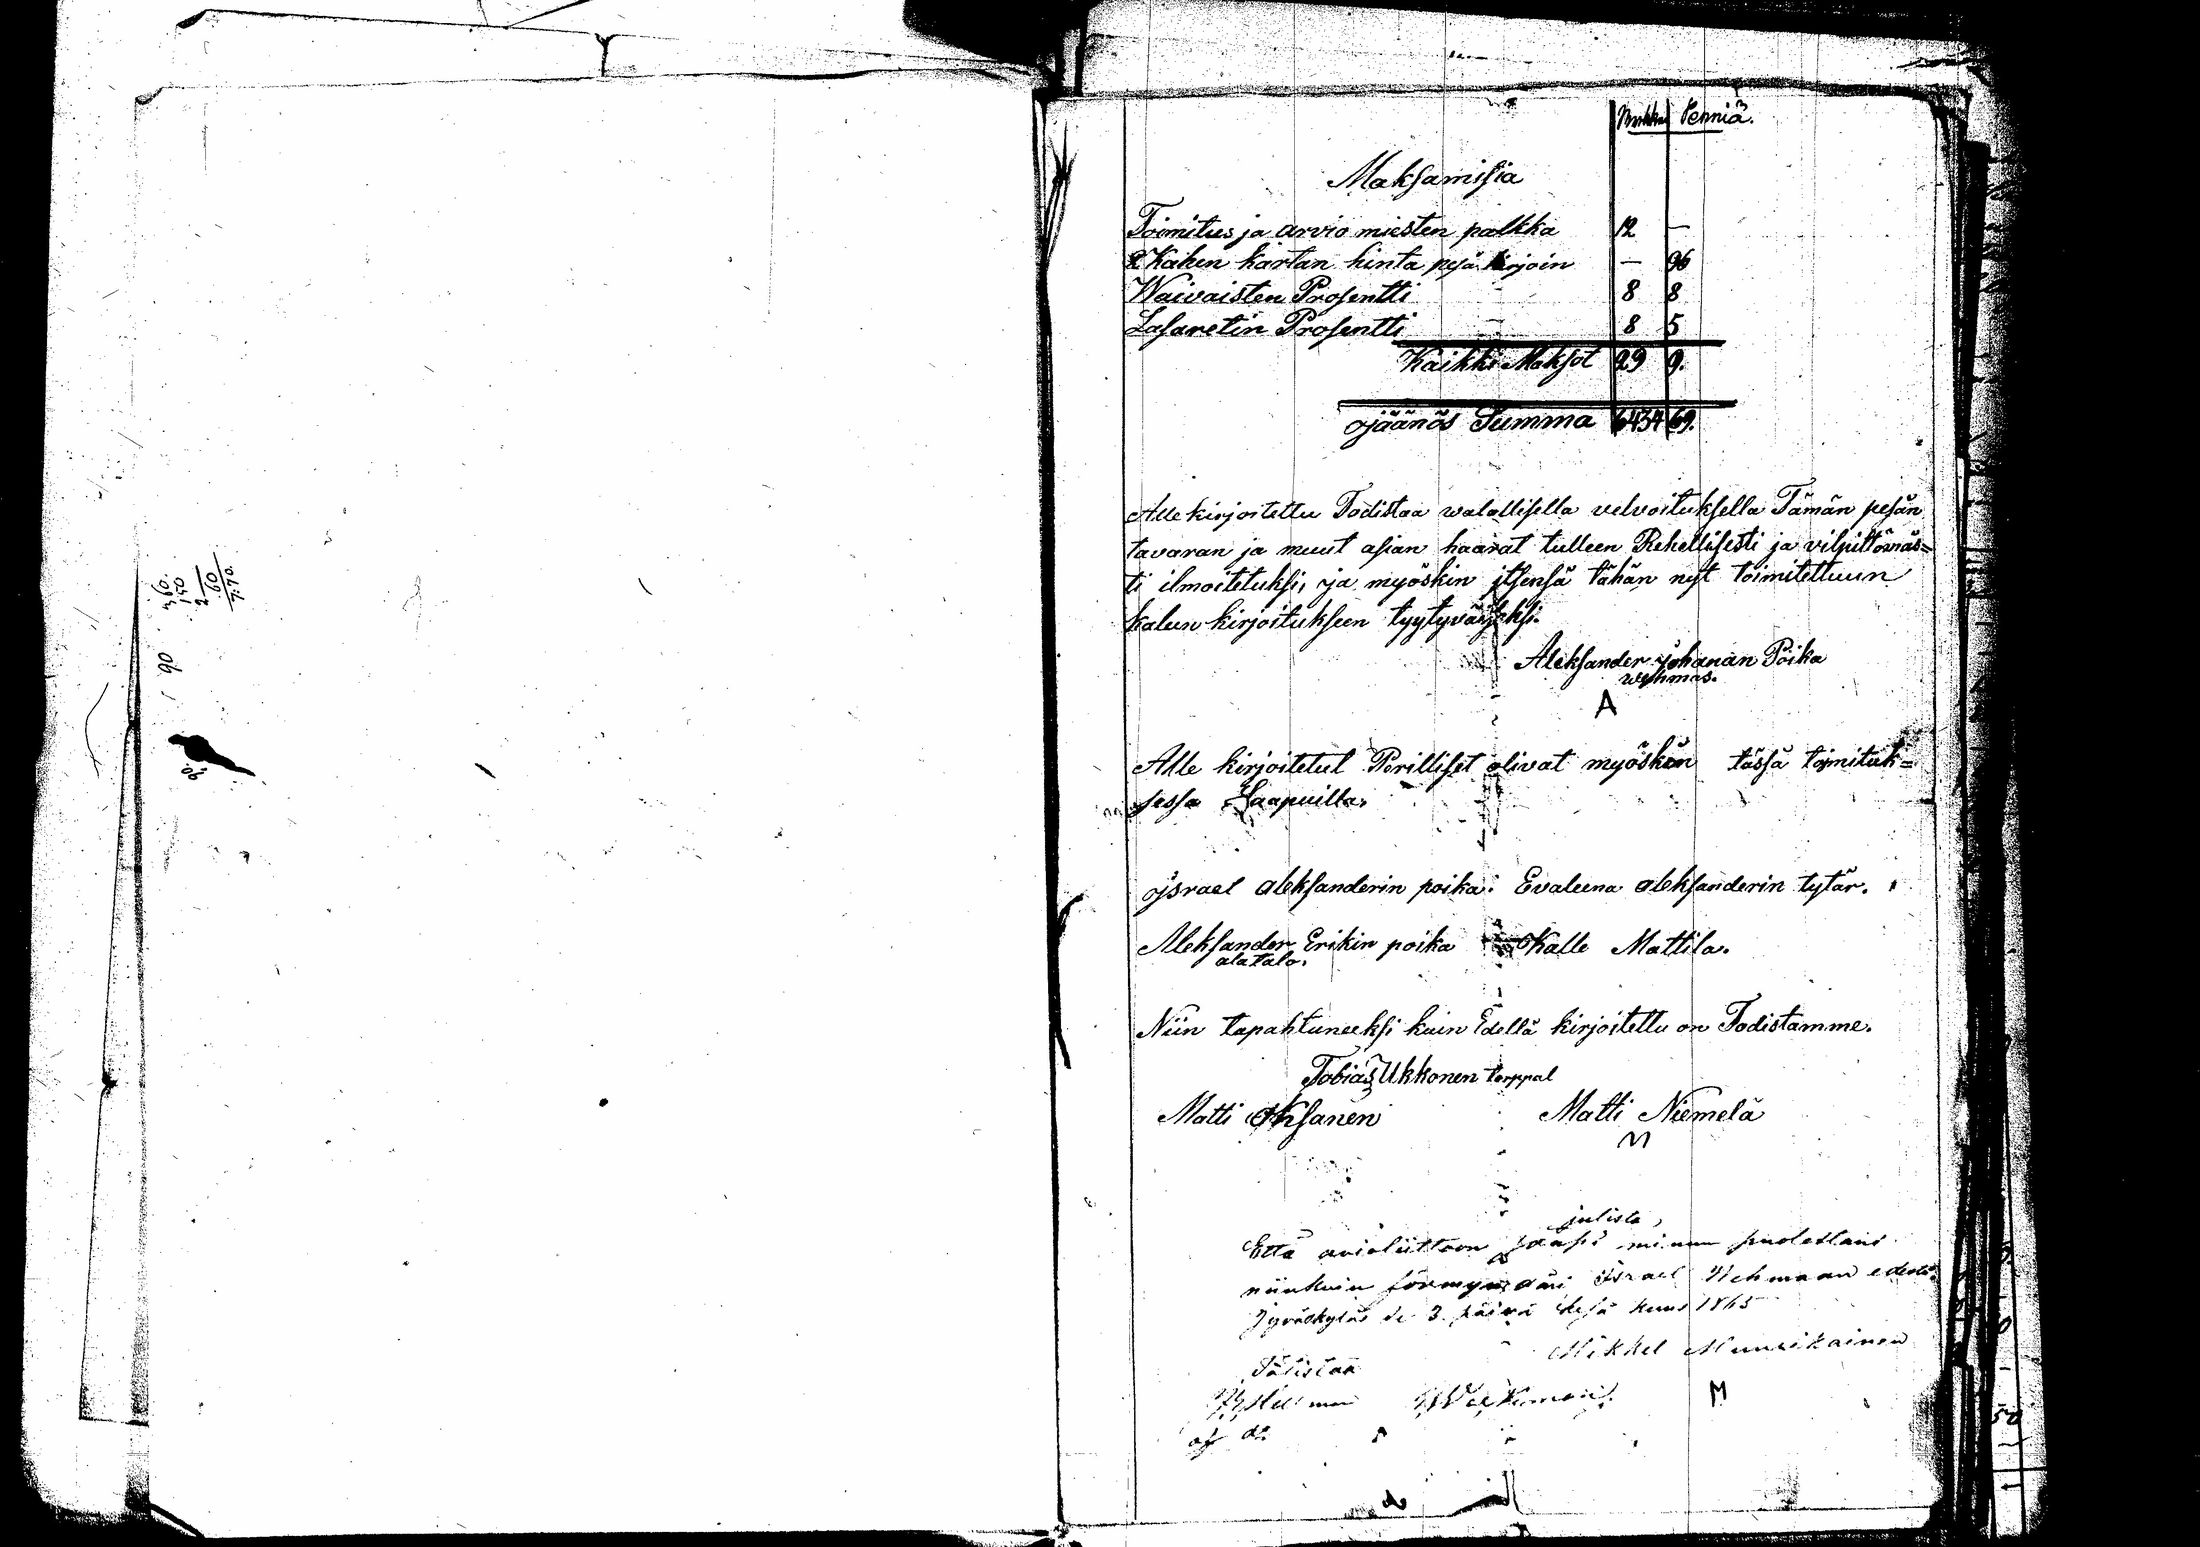 3 60.
1 50
2 60
7:70.
Markka Penniä.
Maksamisia
Toimitus ja arvio miesten palkka 12 —
2 Kahen kartan hinta pesä kirjoin — 96
Waivaisten Prosentti 8 8
Lasaretin Prosentti 8 5
Kaikki Maksot 29 9.
jäänös Summa 6434 69.
Alle kirjoitettu Todistaa walallisella velvoituksella Tämän pesän
tavaran ja muut asian haarat tulleen Rehellisesti ja vilpittömäs=
ti ilmoitetuksi, ja myöskin itsensä tähän nyt toimitettuun
kalun kirjoitukseen tyytyväiseksi.
Aleksander Johanan Poika
wehmas.
A
Alle kirjoitetut Perilliset olivat myöskin tässä toimituk=
sessa Saapuilla.
Israel Aleksanderin poika. Evaleena Aleksanderin tytär.
Aleksander Erikin poika Kalle Mattila.
alatalo.
Niin tapahtuneeksi kuin Edellä kirjoitettu on Todistamme.
Tobias Ukkonen torppal
Matti Oksanen Matti Niemelä
M
julista,
Että avioliittoon saapi minun puolestani
niinkuin förmyndäri Israel Wehmaan edestä
Jyväskyläs se 3. päivä kesä kuus 1865
Mikkel Muurikainen
Totistaa
M